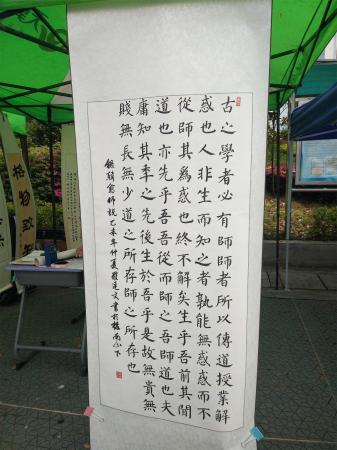 古之學者必有師師者所以傳道授業解
惑也人非生而知之者孰能無惑惑而不
從師其爲惑也終不解矣生乎吾前其聞
道也亦先乎吾吾從而師之吾師道也夫
庸知其年之先後生於吾乎是故無貴無
賤無長無少道之所存師之所存也
錄韓愈師說乙未年仲夏文書於南山下
格物致